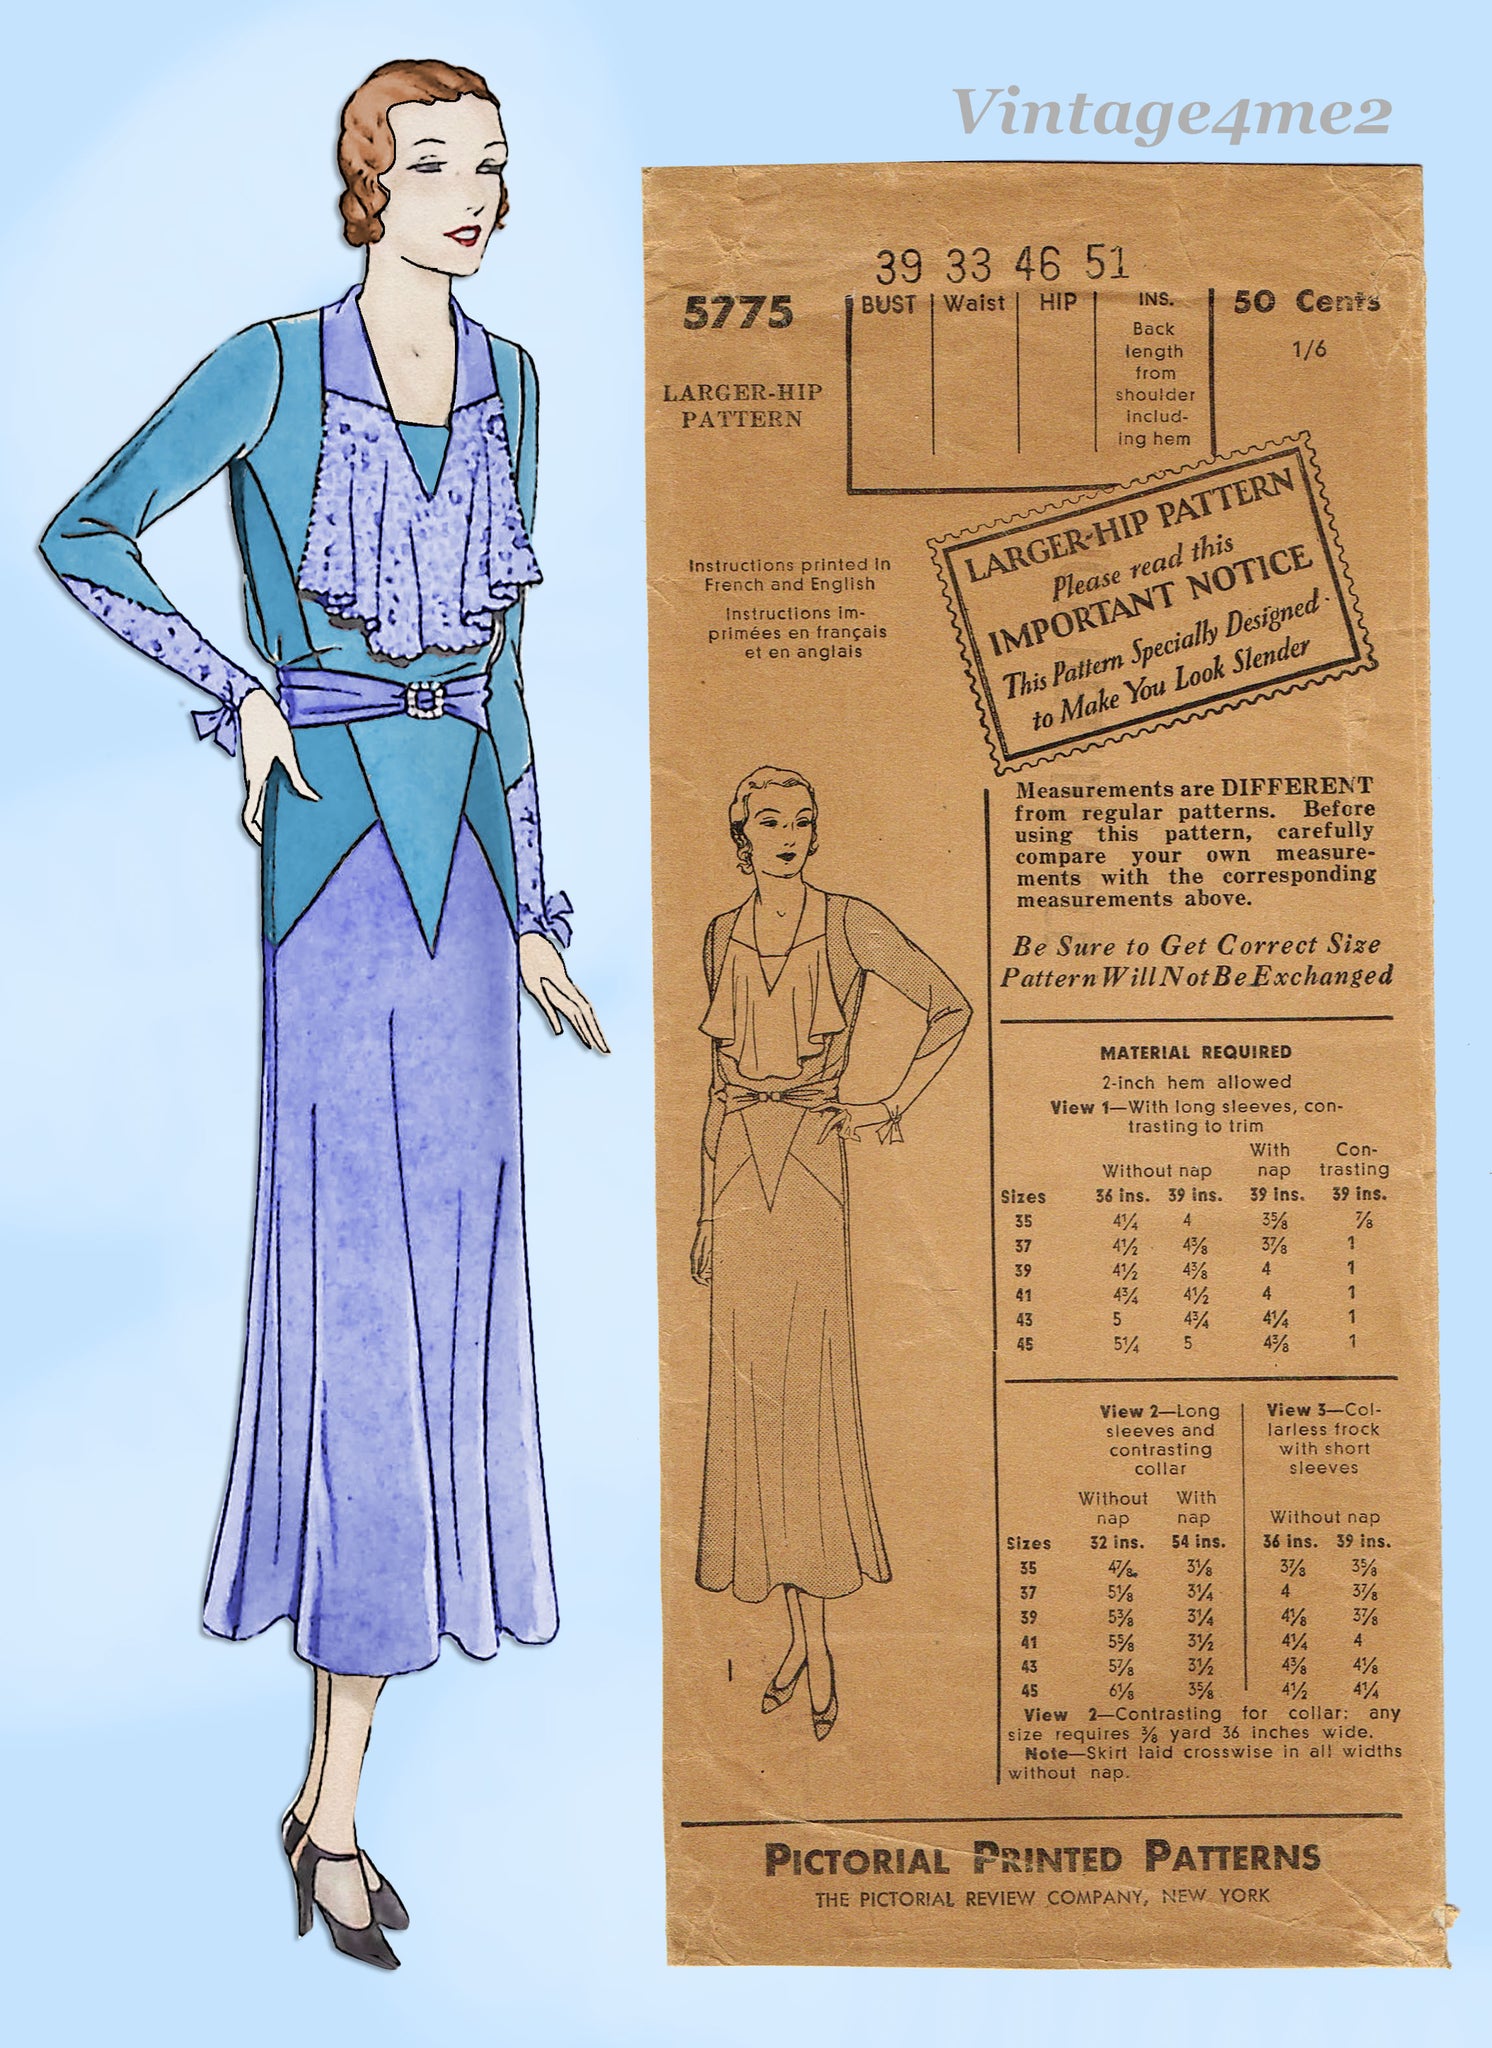 Vintage4me2
39 33 46 51
5775
BUST Waist HIP INS.
Back
length
from
shoulder
includ-
ing hem
50 Cents
1/6
LARGER-HIP
PATTERN
Instructions printed in
French and English
Instructions im-
primées en français
et en anglais
LARGER-HIP PATTERN
Please read this
IMPORTANT NOTICE
This Pattern Specially Designed
to Make You Look Slender
Measurements are DIFFERENT
from regular patterns. Before
using this pattern, carefully
compare your own measure-
ments with the corresponding
measurements above.
Be Sure to Get Correct Size
Pattern Will Not Be Exchanged
MATERIAL REQUIRED
2-inch hem allowed
View 1—With long sleeves, con-
trasting to trim
Without nap With nap Con-trasting
Sizes 36 ins. 39 ins. 39 ins. 39 ins.
35 4¼ 4 3⅝ ⅞
37 4½ 4⅜ 3⅞ 1
39 4½ 4⅜ 4 1
41 4¾ 4½ 4 1
43 5 4¾ 4¼ 1
45 5¼ 5 4⅜ 1
View 2—Long
sleeves and
contrasting
collar
View 3—Col-
larless frock
with short
sleeves
Without nap With nap Without nap
Sizes 32 ins. 54 ins. 36 ins. 39 ins.
35 4⅞ 3⅛ 3⅞ 3⅝
37 5⅛ 3¼ 4 3⅞
39 5⅜ 3¼ 4⅛ 3⅞
41 5⅝ 3½ 4¼ 4
43 5⅞ 3½ 4⅜ 4⅛
45 6⅛ 3⅝ 4½ 4¼
View 2—Contrasting for collar: any
size requires ⅜ yard 36 inches wide.
Note—Skirt laid crosswise in all widths
without nap.
1
PICTORIAL PRINTED PATTERNS
THE PICTORIAL REVIEW COMPANY, NEW YORK